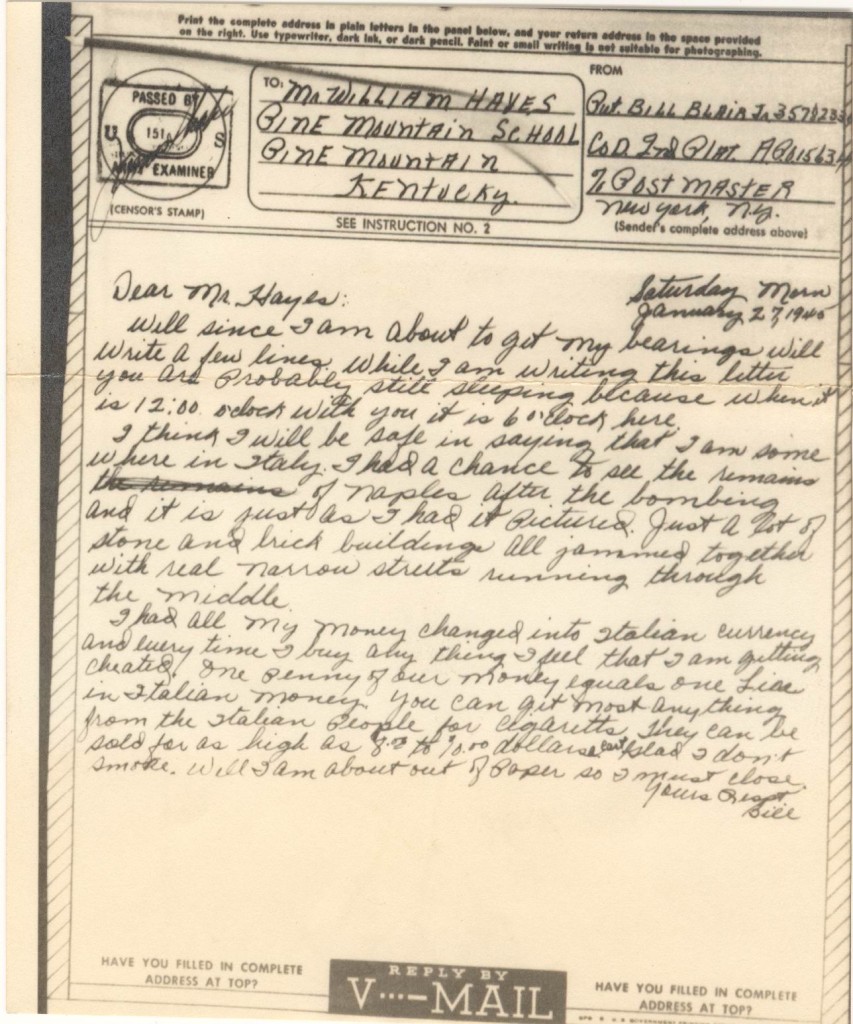 Print the complete address in plain letters in the panel below, and your return address in the space provided
on the right. Use typewriter, dark ink, or dark pencil. Faint or small writing is not suitable for photographing.
PASSED BY
U 151 S
ARMY EXAMINER
(CENSOR'S STAMP)
TO:
Mr WILLIAM HAYES
PINE MOUNTAIN SCHOOL
PINE MOUNTAIN
KENTUCKY.
SEE INSTRUCTION NO. 2
FROM
Pvt. BILL BLAIR Jr
Co D. 2nd Plat. APO
% POST MASTER
New York, N.Y.
(Sender's complete address above)
Saturday Morn
January 27, 1945
Dear Mr. Hayes:
Will since I am about to get my bearings will
write a few lines. While I am writing this letter
you are Probably still sleeping because when it
is 12:00 o'clock with you it is 6 o'clock here.
I think I will be safe in saying that I am some
where in Italy. I had a chance to see the remains
the remains of Naples after the bombing
and it is just as I had it pictured. Just a lot of
stone and brick buildings all jammed together
with real narrow streets running through
the middle.
I had all my money changed into Italian currency
and every time I buy any thing I feel that I am getting
cheated. One penny of our money equals one Lira
in Italian money. You can get most anything
from the Italian People for cigaretts. They can be
sold for as high as 8.00 to 10.00 dollars a cart. Glad I don't
smoke. Will I am about out of Paper so I must close.
Yours Respt.
Bill
HAVE YOU FILLED IN COMPLETE
ADDRESS AT TOP?
REPLY BY
V···—MAIL
HAVE YOU FILLED IN COMPLETE
ADDRESS AT TOP?